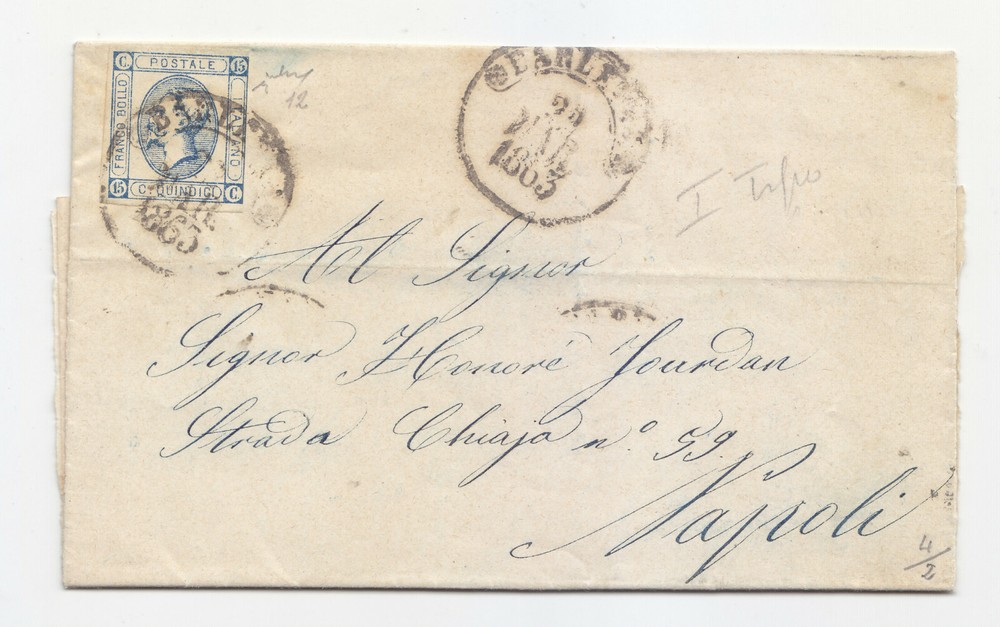 C. POSTALE 15
FRANCO BOLLO
ITALIANO
15 C. QUINDICI C.
1863
12
BARLETTA
1863
I Tipo
Al Signor
Signor Honoré Jourdan
Strada Chiaja n.º 59.
Napoli
4/2